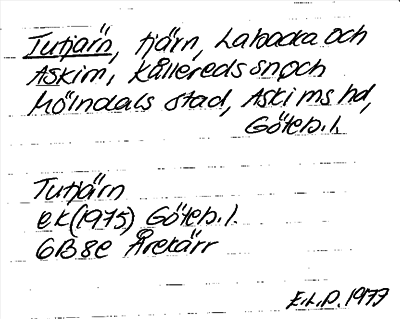 Tutjärn, tjärn, Labacka och
Askim, Kållereds snoch
Mölndals stad, Askims hd,
Göteb. l.
Tutjärn
ek (1975) Göteb. l.
6B 8e Årekärr
E.L.P. 1977